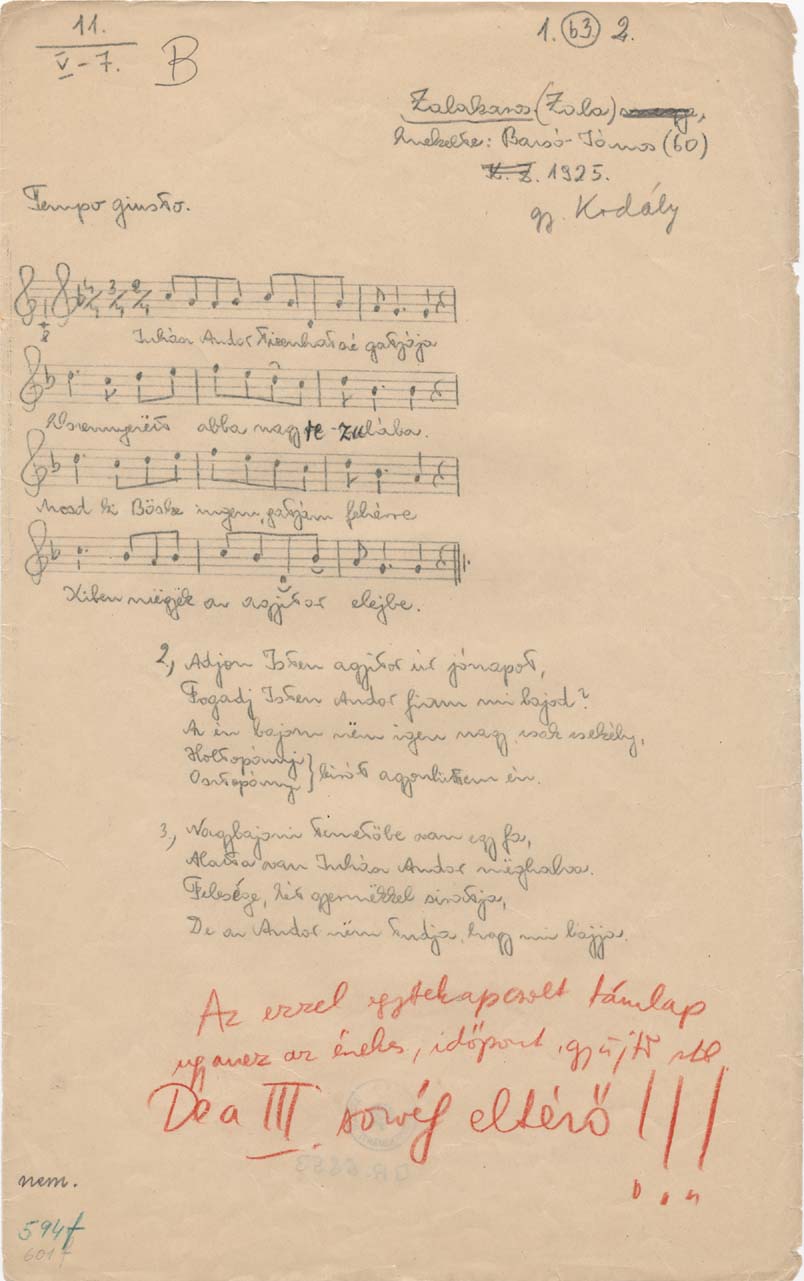 11.
V - 7.
B
1. (b3) 2.
Zalakaros (Zala)
Énekelte: Barsó János (60)
1925.
gy. Kodály
Tempo giusto.
4/4 3/4 2/4
Juhász Andor tizenhatszé gatyája
Összenyerëtt abba nagy te-zulába.
Mosd ki Böske ingem, gatyám fehérre
Kiben mëgyëk az agjitor elejbe.
2., Adjon Isten agjitor úr jónapot,
Fogadj Isten Andor fiam mi bajod?
Az én bajom nëm igen nagy csak csekély,
Osztopáni } bírót agyonlüttem én.
3., Nagybajomi temetőbe van egy fa,
Alatta van Juhász Andor mëghalva.
Felesége, két gyermëkkel siratja,
De az Andor nëm tudja, hogy mi bajja.
Az ezzel egytekapcsolt támlap
ugyanez az énekes, időpont, gyűjtő stb.
De a III. sorvég eltérő!!!
nem.
594f
601f